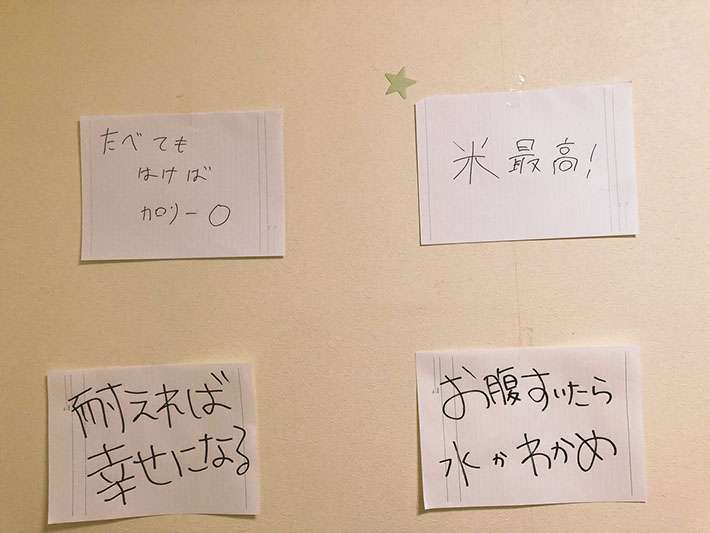 たべても
はけば
カロリー0
米最高!
耐えれば
幸せになる
お腹すいたら
水かわかめ